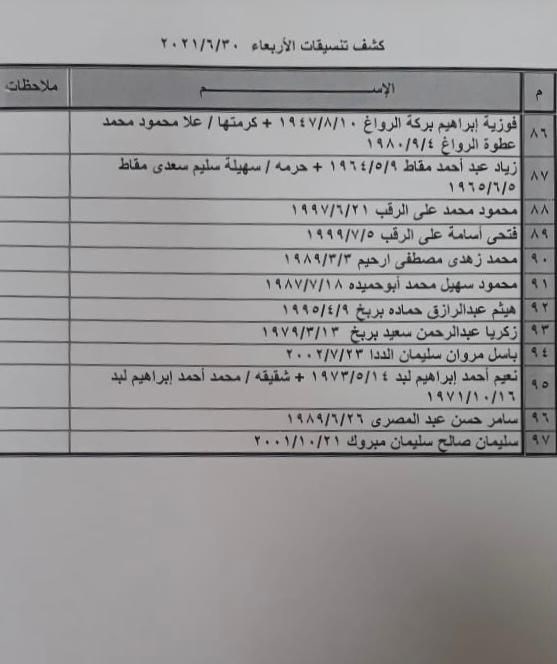 كشف تنسيقات الأربعاء ٢٠٢١/٦/٣٠
م الإســـــــم ملاحظات
٨٦ فوزية إبراهيم بركة الرواغ ١٩٤٧/٨/١٠ + كرمتها / علا محمود محمد
عطوة الرواغ ١٩٨٠/٩/٤
٨٧ زياد عبد أحمد مقاط ١٩٦٤/٥/٩ + حرمه / سهيلة سليم سعدى مقاط
١٩٦٥/٦/٥
٨٨ محمود محمد على الرقب ١٩٩٧/٦/٢١
٨٩ فتحى أسامة على الرقب ١٩٩٩/٧/٥
٩٠ محمد زهدى مصطفى ارحيم ١٩٨٩/٣/٣
٩١ محمود سهيل محمد أبوحميده ١٩٨٧/٧/١٨
٩٢ هيثم عبدالرازق حماده بربخ ١٩٩٥/٤/٩
٩٣ زكريا عبدالرحمن سعيد بربخ ١٩٧٩/٣/١٣
٩٤ باسل مروان سليمان الددا ٢٠٠٢/٧/٢٣
٩٥ نعيم أحمد إبراهيم لبد ١٩٧٣/٥/١٤ + شقيقه / محمد أحمد إبراهيم لبد
١٩٧١/١٠/١٦
٩٦ سامر حسن عبد المصرى ١٩٨٩/٦/٢٦
٩٧ سليمان صالح سليمان مبروك ٢٠٠١/١٠/٢١